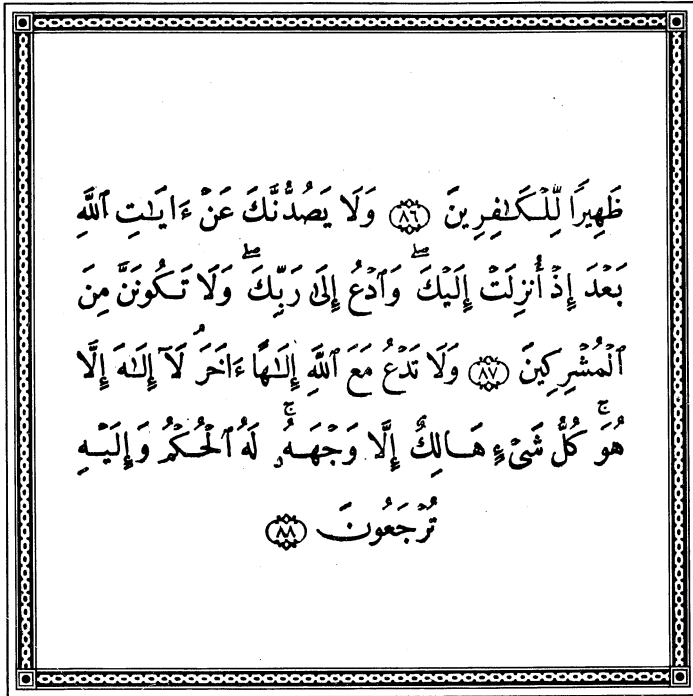 ظَهِيرًا لِّلْكَـٰفِرِينَ ﴿٨٦﴾ وَلَا يَصُدُّنَّكَ عَنْ ءَايَـٰتِ ٱللَّهِ
بَعْدَ إِذْ أُنزِلَتْ إِلَيْكَ ۖ وَٱدْعُ إِلَىٰ رَبِّكَ ۖ وَلَا تَكُونَنَّ مِنَ
ٱلْمُشْرِكِينَ ﴿٨٧﴾ وَلَا تَدْعُ مَعَ ٱللَّهِ إِلَـٰهًا ءَاخَرَ ۘ لَآ إِلَـٰهَ إِلَّا
هُوَ ۚ كُلُّ شَىْءٍ هَالِكٌ إِلَّا وَجْهَهُۥ ۚ لَهُ ٱلْحُكْمُ وَإِلَيْهِ
تُرْجَعُونَ ﴿٨٨﴾